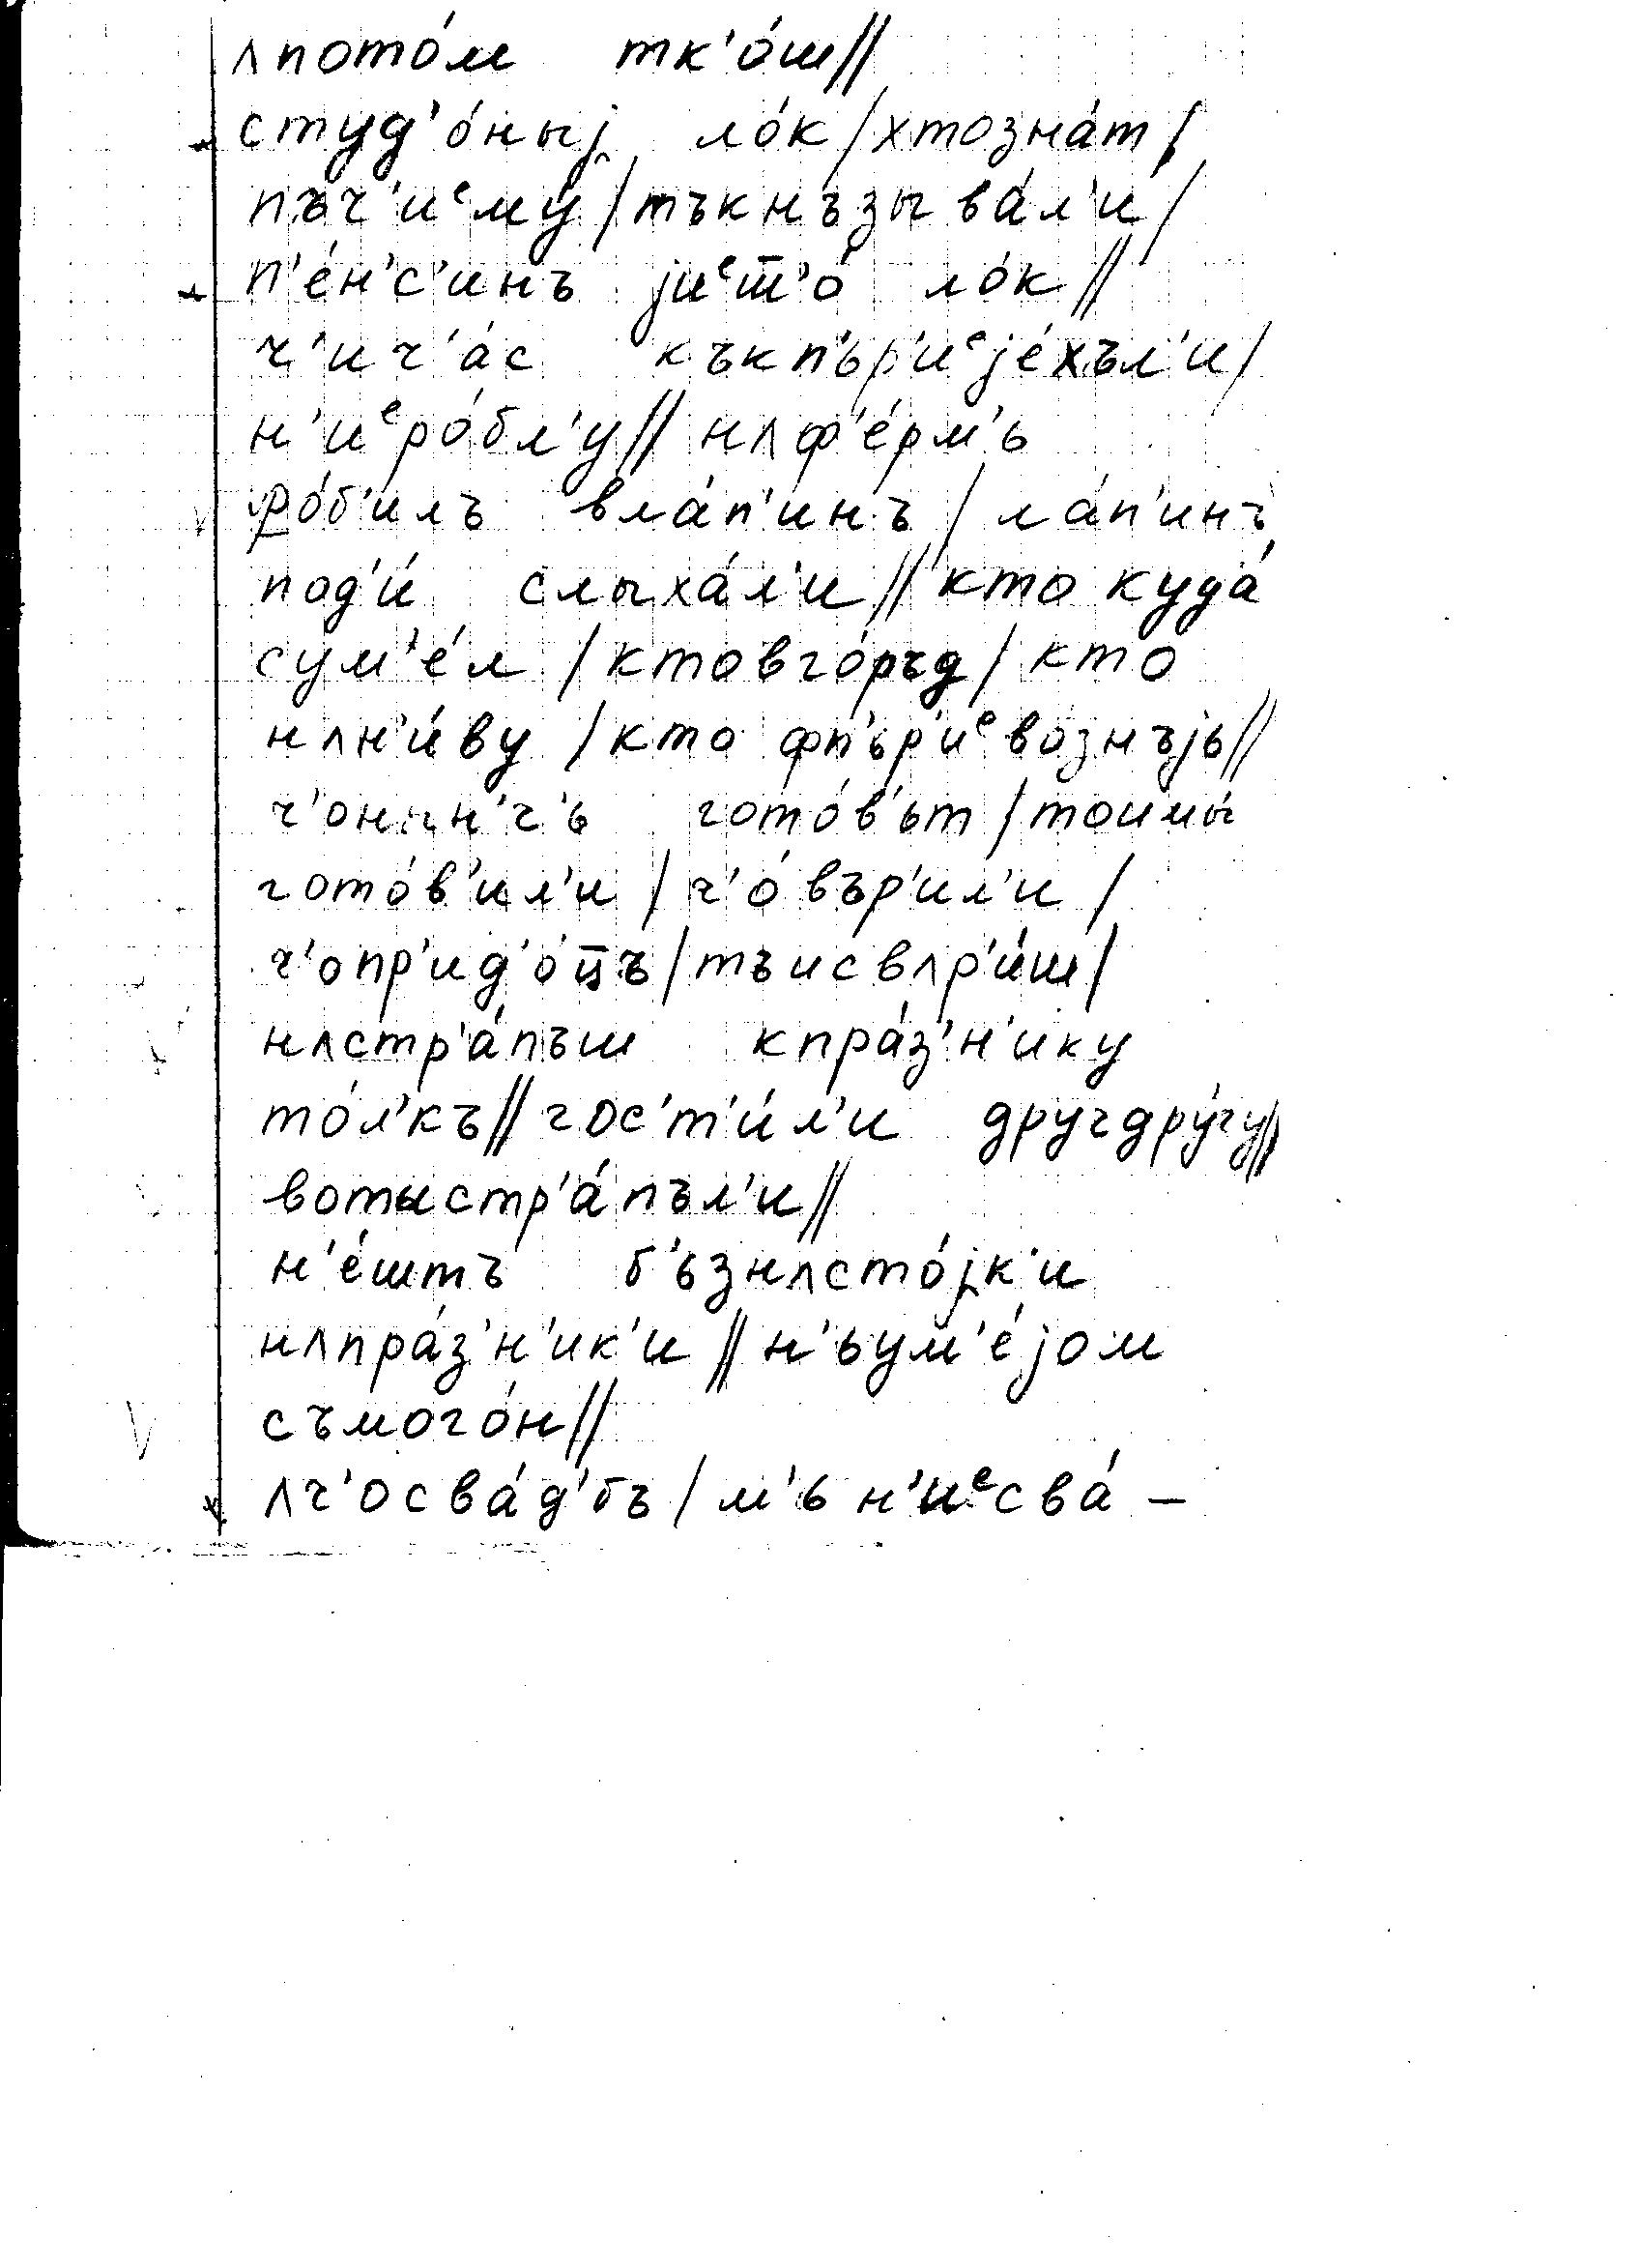 ʌпото́м тк'о́ш//
студ'о́ныј ло́к/хтозна́т/
пъч'иᵉму́/тъкнъзыва́л'и/
п'е́н'с'инъ јиᵉт̅'о́ ло́к//
ч'ич'а́с къкп'ьр'иᵉје́хъл'и/
н'иᵉро́бл'у//нʌф'е́рм'ь
ро́б'илъ вла́п'инъ/ла́п'инъ
под'и́ слыха́л'и//кто куда́
сум'е́л/ктовго́ръд/кто
нʌн'и́ву/кто фп'ьр'иᵉво́знъјь//
ч'онын'ч'ь гото́в'ът/тоимы́
гото́в'ил'и/ч'о́ вър'ил'и/
ч'опр'ид'о́ц̅ъ/тъисвʌр'и́ш/
нʌстр'а́пъш кпра́з'н'ику
то́л'къ//гос'т'и́л'и другдру́гу//
вотыстр'а́пъл'и//
н'е́штъ б'ьзнʌсто́јк'и
нʌпра́з'н'ик'и//н'ьум'е́јом
съмого́н//
ʌч'осва́д'бъ/м'ь н'иᵉсва́ –